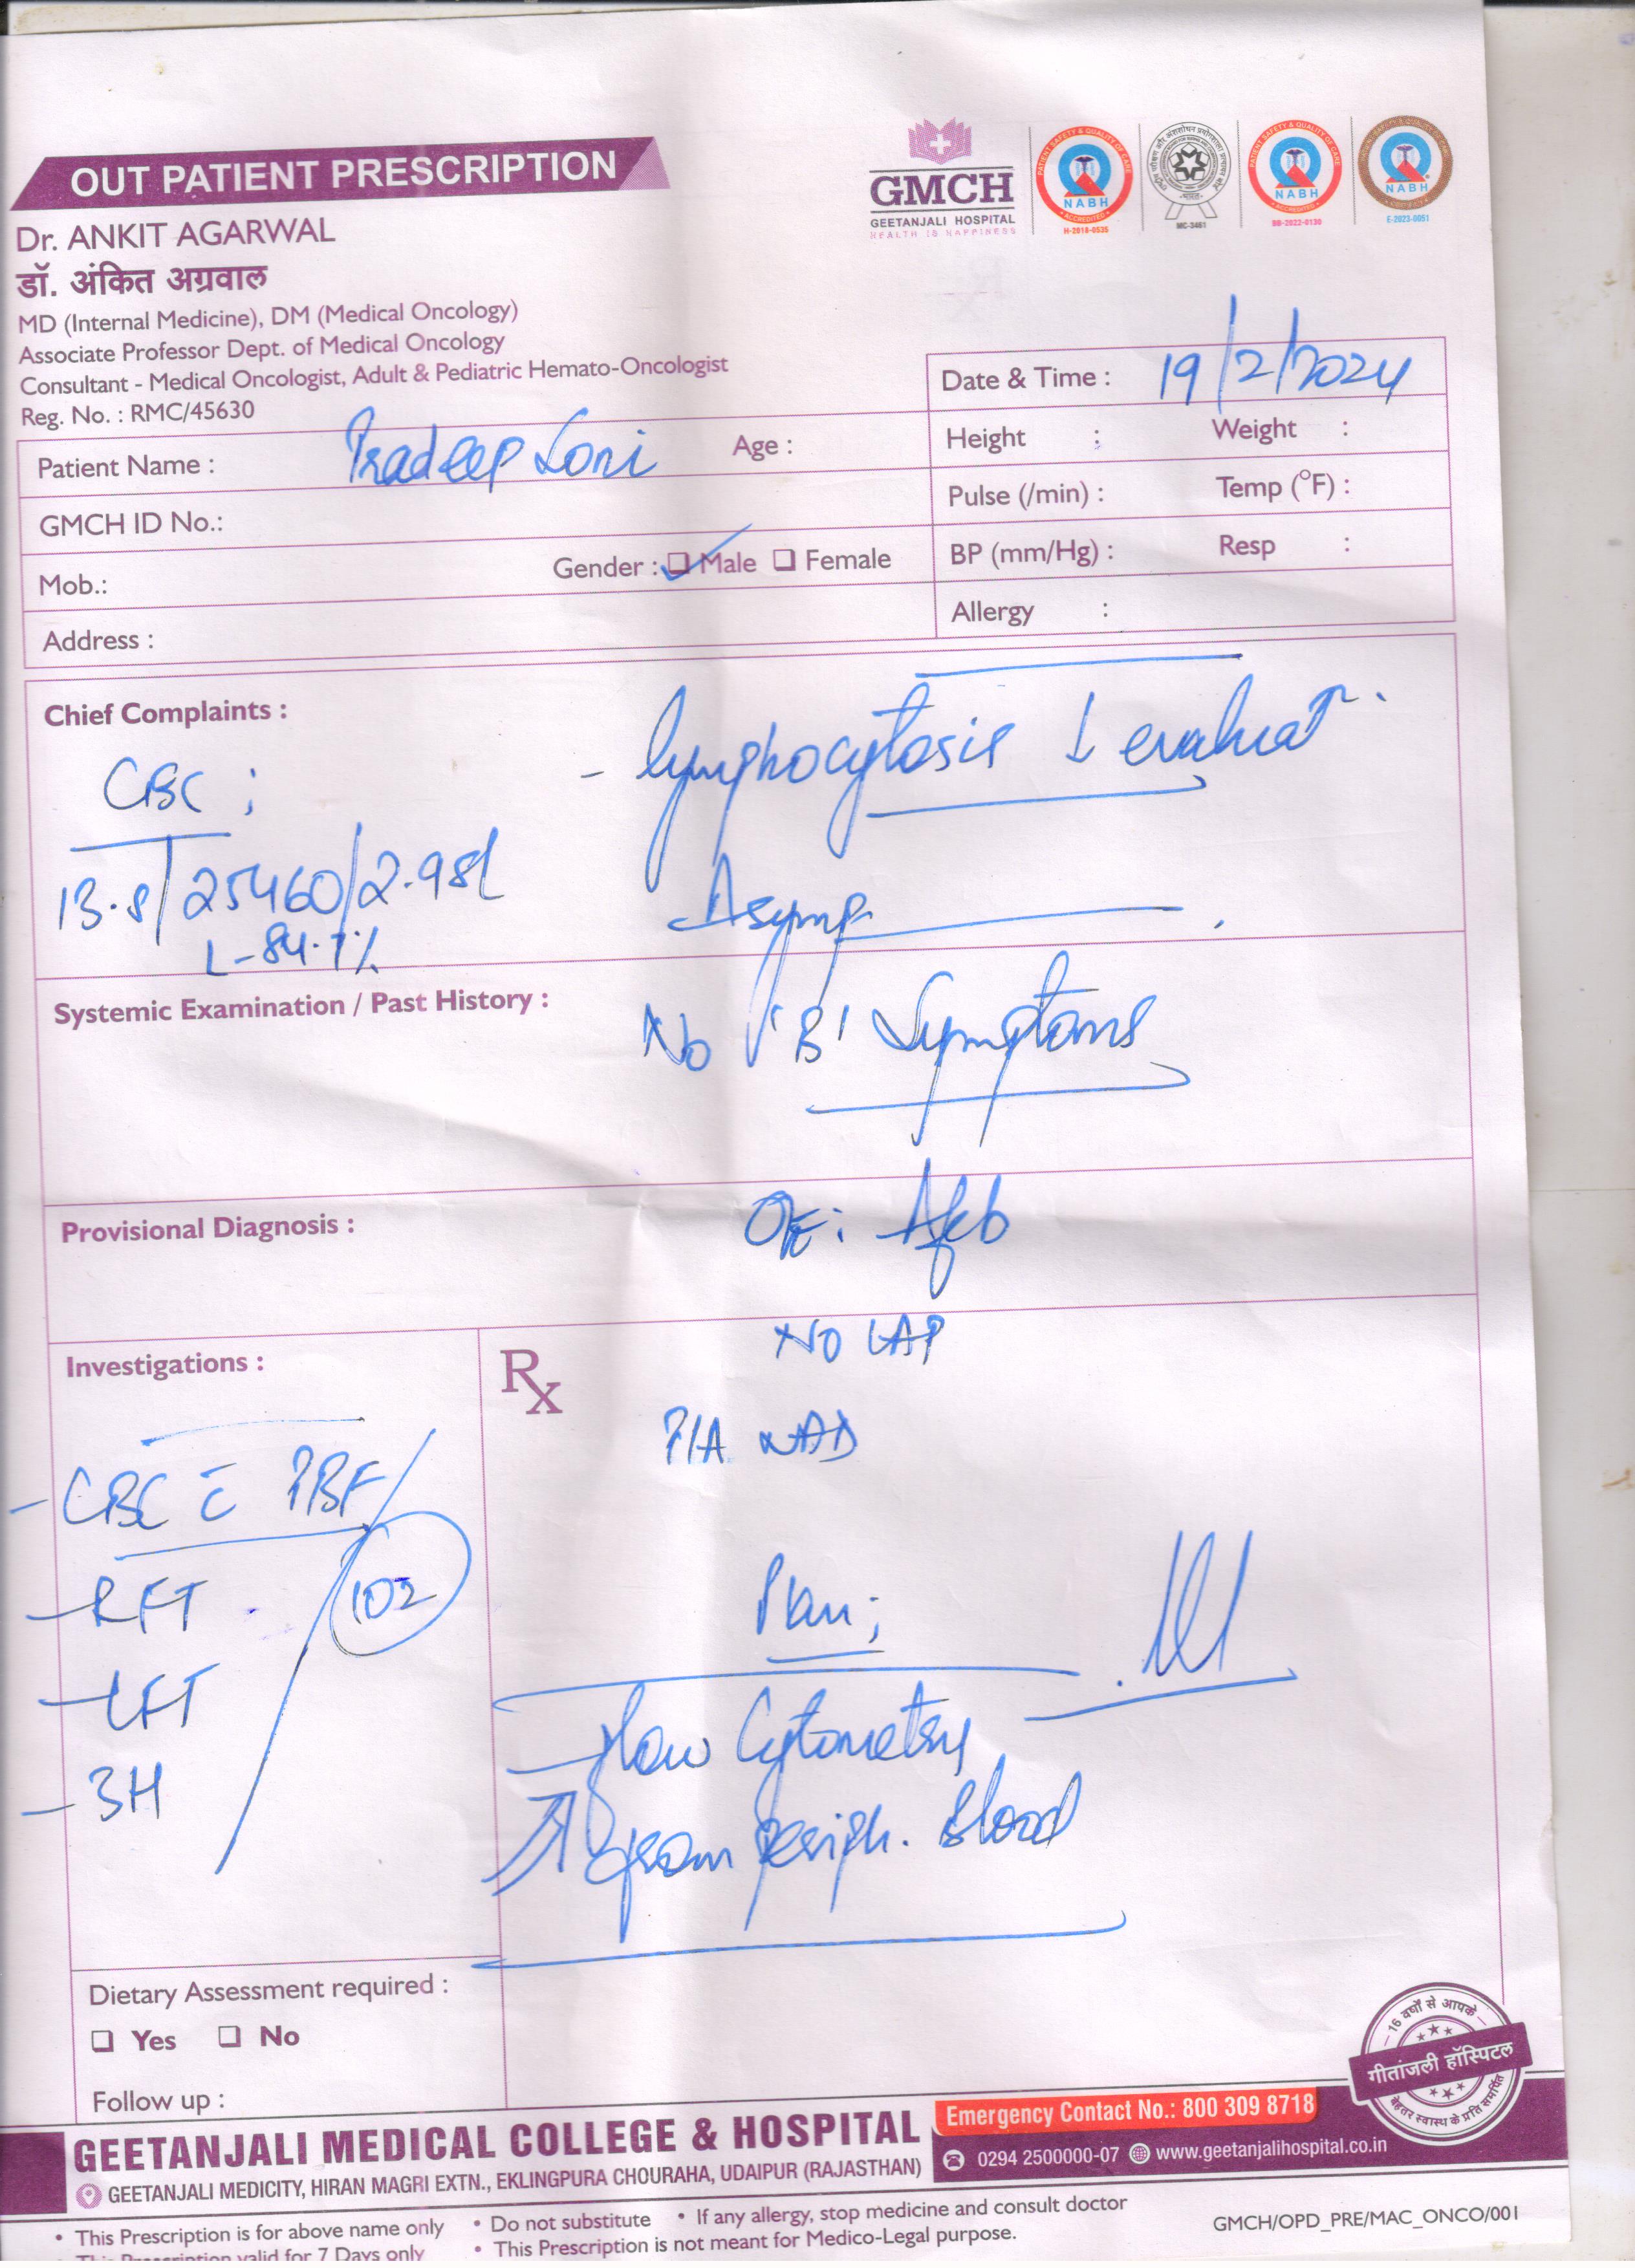 OUT PATIENT PRESCRIPTION
GMCH
GEETANJALI HOSPITAL
HEALTH IS HAPPINESS
NABH
H-2018-0535
MC-3461
NABH
BB-2022-0130
NABH
E-2023-0051
Dr. ANKIT AGARWAL
डॉ. अंकित अग्रवाल
MD (Internal Medicine), DM (Medical Oncology)
Associate Professor Dept. of Medical Oncology
Consultant - Medical Oncologist, Adult & Pediatric Hemato-Oncologist
Reg. No. : RMC/45630
Date & Time : 19/2/2024
Patient Name : Pradeep Soni Age :
Height : Weight :
GMCH ID No.:
Pulse (/min) : Temp (°F) :
Mob.: Gender : Male Female
BP (mm/Hg) : Resp :
Address :
Allergy :
Chief Complaints :
- lymphocytosis ↓ evaluat
CBC ;
13.8/25460/2.98L
L-84.7%
Asymp
Systemic Examination / Past History :
No 'B' Symptoms
Provisional Diagnosis :
O/E: Afeb
NO LAP
Investigations :
Rx
P/A NAD
- CBC c̄ PBF
- RFT
102
- LFT
- 3H
Plan ;
- Flow Cytometry
from periph. Blood
Dietary Assessment required :
Yes No
Follow up :
16 वर्षों से आपके
गीतांजली हॉस्पिटल
बेहतर स्वास्थ के प्रति समर्पित
GEETANJALI MEDICAL COLLEGE & HOSPITAL
Emergency Contact No.: 800 309 8718
GEETANJALI MEDICITY, HIRAN MAGRI EXTN., EKLINGPURA CHOURAHA, UDAIPUR (RAJASTHAN)
0294 2500000-07 www.geetanjalihospital.co.in
• This Prescription is for above name only • Do not substitute • If any allergy, stop medicine and consult doctor
• This Prescription valid for 7 Days only • This Prescription is not meant for Medico-Legal purpose.
GMCH/OPD_PRE/MAC_ONCO/001